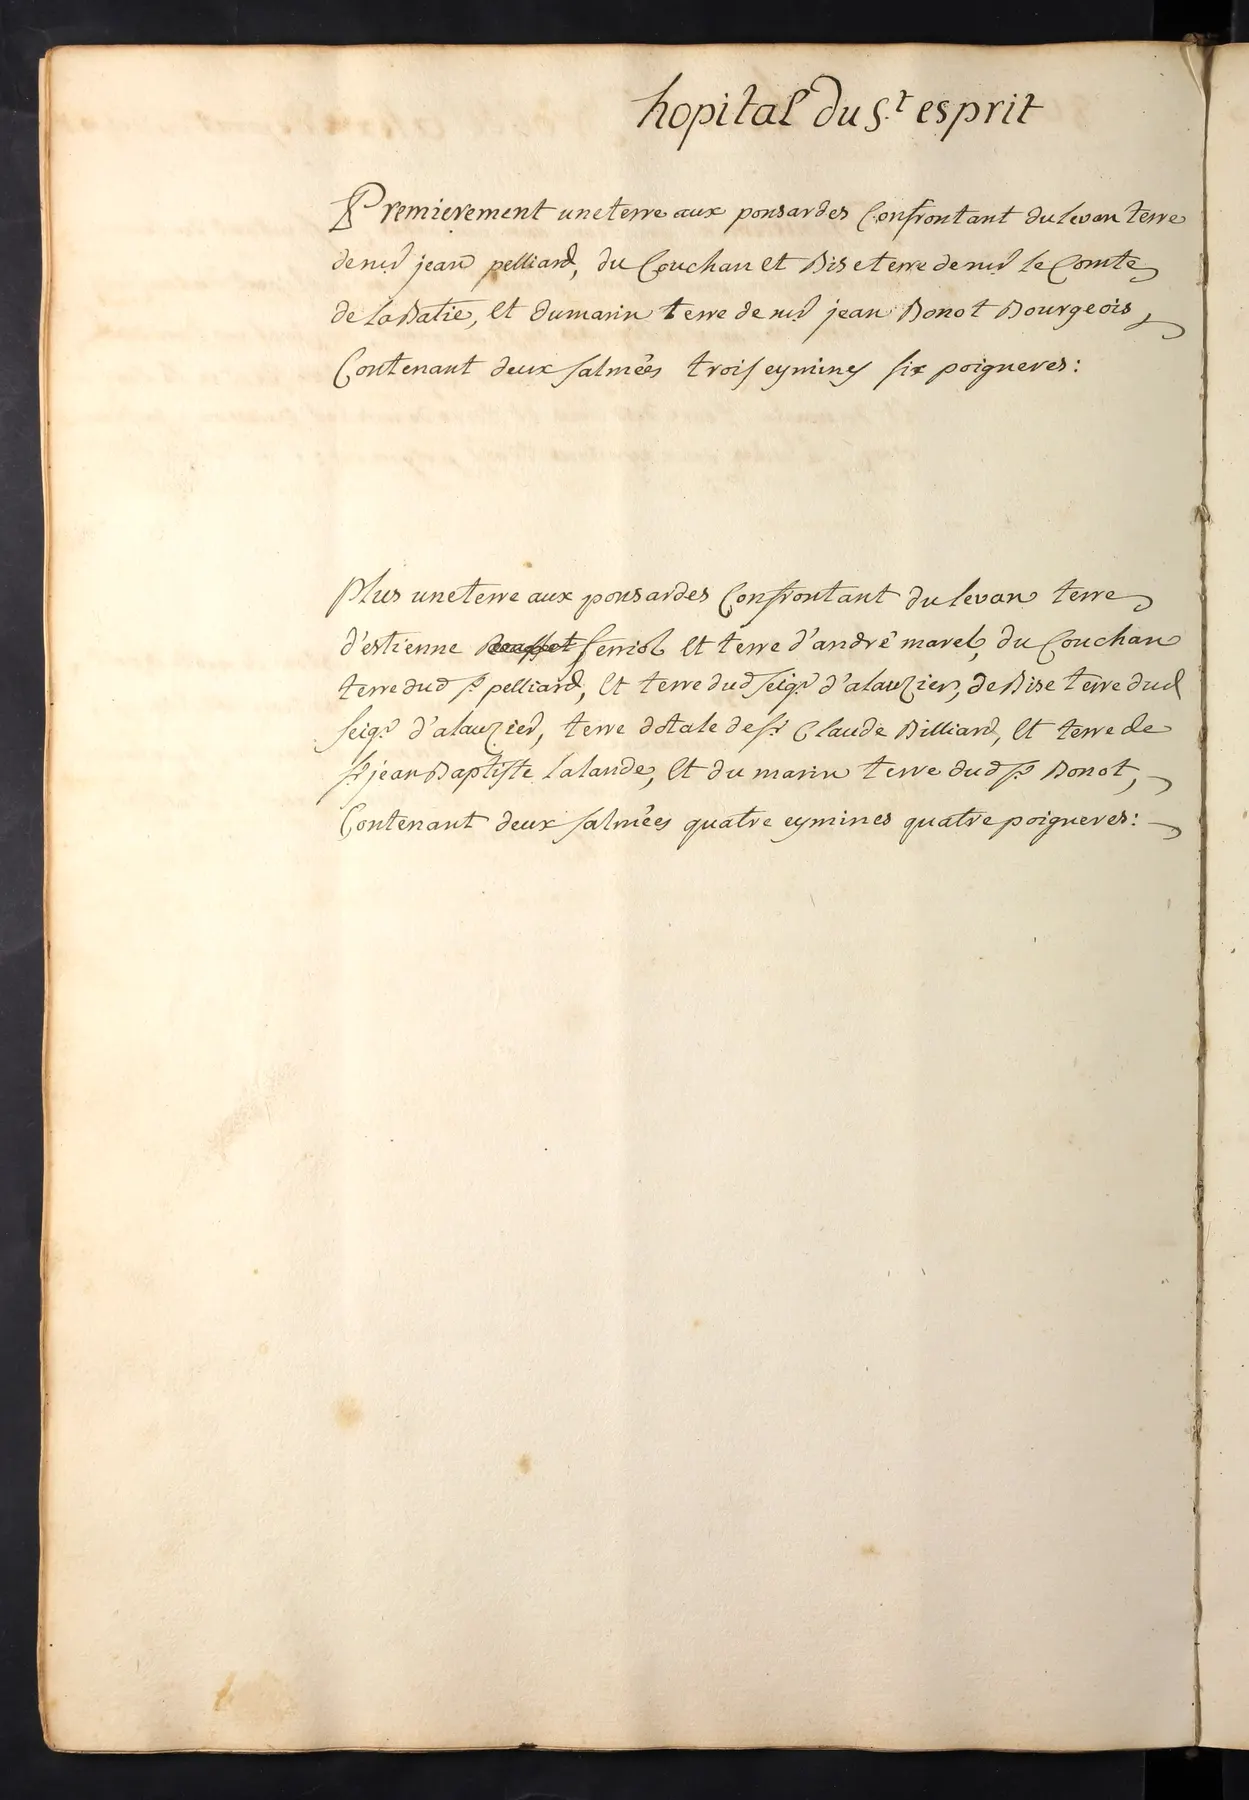 hopital du S.t esprit
Premierement une terre aux ponsardes Confrontant du levan terre
de mr jean pelliard, du Couchan et Bise terre de mr le Comte
de la Batie, et du marin terre de mr jean Bonot Bourgeois,
Contenant deux salmées trois eymines six poigneres:
Plus une terre aux ponsardes Confrontant du levan terre
d'estienne ferriol et terre d'andré marel, du Couchan
terre dud sr pelliard, et terre dud seigr d'alauzier, de Bise terre dud
seigr d'alauzier, terre dotale de sr Claude Billiard, et terre de
sr jean Baptiste lalande, et du marin terre dud sr Bonot,
Contenant deux salmées quatre eymines quatre poigneres: